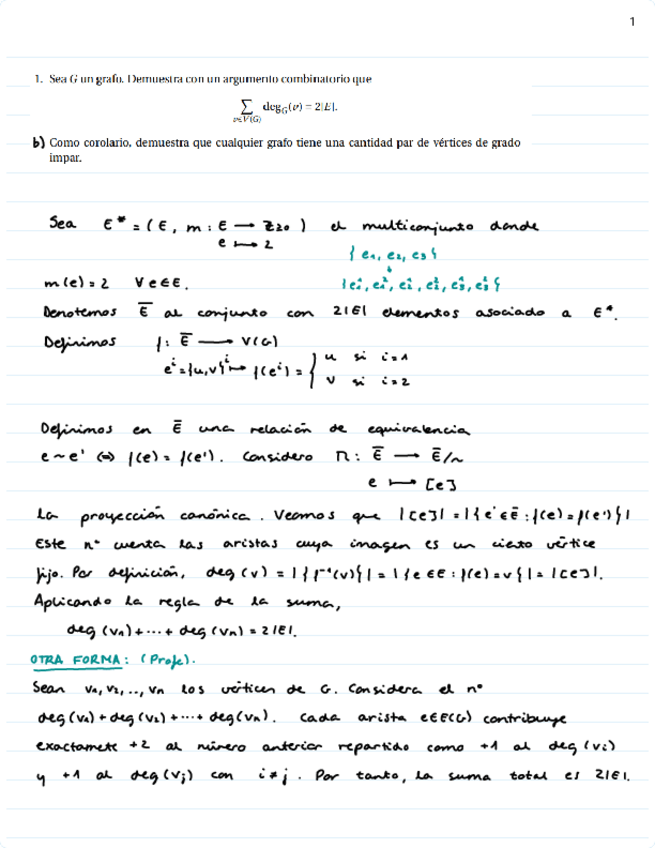 1
1. Sea G un grafo. Demuestra con un argumento combinatorio que
∑_{v∈V(G)} deg_G(v) = 2|E|.
b) Como corolario, demuestra que cualquier grafo tiene una cantidad par de vértices de grado
impar.
Sea E* = (E, m: E → Z≥0) el multiconjunto donde
e ↦ 2
{e₁, e₂, e₃}
↓
m(e) = 2 ∀e∈E. {e₁¹, e₁², e₂¹, e₂², e₃¹, e₃²}
Denotemos Ē al conjunto con 2|E| elementos asociado a E*.
Definimos f: Ē → V(G)
eⁱ = {u,v}ⁱ ↦ f(eⁱ) = { u si i=1
v si i=2
Definimos en Ē una relación de equivalencia
e ~ e' ⇔ f(e) = f(e'). Considero Π: Ē → Ē/~
e ↦ [e]
la proyección canónica. Veamos que |[e]| = |{e'∈Ē : f(e) = f(e')}|
Este nº cuenta las aristas cuya imagen es un cierto vértice
fijo. Por definición, deg(v) = |{f⁻¹(v)}| = |{e∈E : f(e)=v}| = |[e]|.
Aplicando la regla de la suma,
deg(v₁) + ··· + deg(vₙ) = 2|E|.
OTRA FORMA: (Profe).
Sean v₁, v₂, .., vₙ los vértices de G. Considera el nº
deg(v₁) + deg(v₂) + ··· + deg(vₙ). Cada arista e∈E(G) contribuye
exactamete +2 al número anterior repartido como +1 al deg(vᵢ)
y +1 al deg(vⱼ) con i≠j. Por tanto, la suma total es 2|E|.